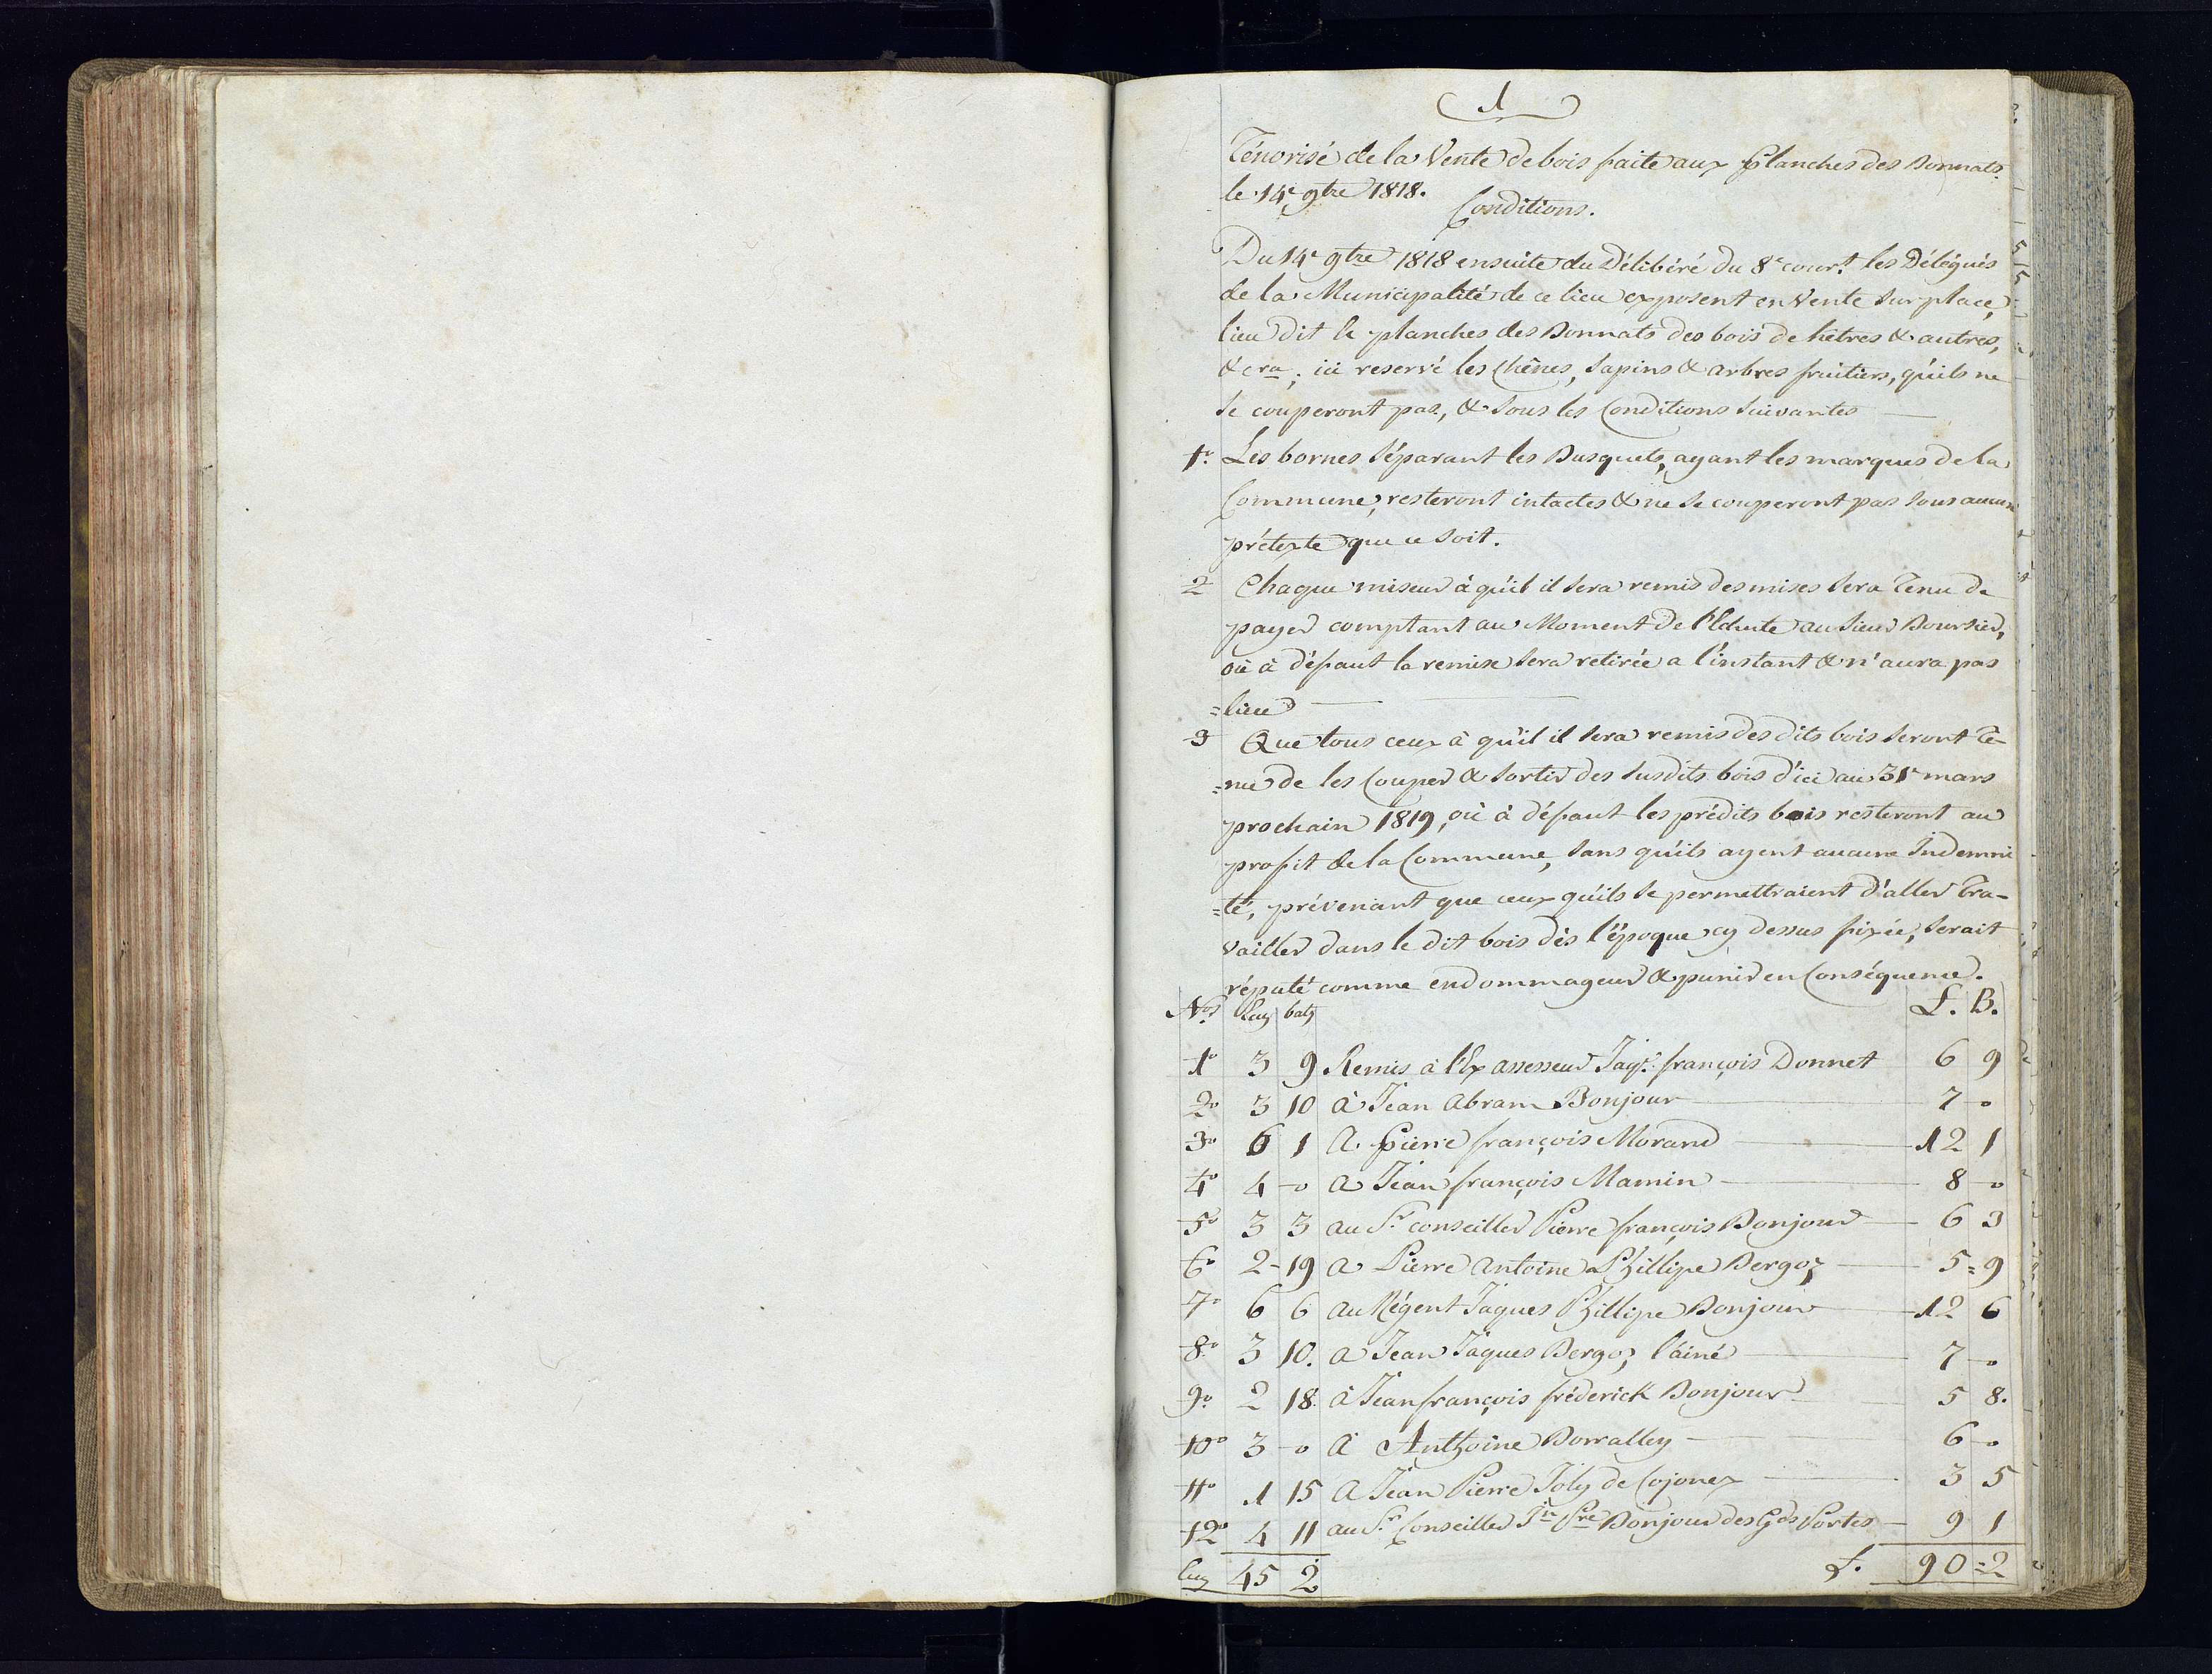 1
Ténorisé de la Vente de bois faite aux planches des Bonnats
le 14e 9bre 1818.
Conditions.
Du 14e 9bre 1818 ensuite du Délibéré du 8e cour.t les Délégués
de la Municipalité de ce lieu exposent en Vente sur place,
lieu dit le planches des Bonnats des bois de hêtres & autres,
&cra; ici reservé les Chênes, Sapins & arbres fruitiers, qu'ils ne
se couperont pas, & sous les Conditions suivantes
1o. Les bornes séparant les Busquets, ayant les marques de la
Commune, resteront intactes & ne se couperont pas sous aucun
prétexte que ce soit.
2 Chaque miseur à qu'il il sera remis des mises sera tenu de
payer comptant au Moment de l'Echute au sieur Boursier,
où à défaut la remise sera retirée a l'instant & n'aura pas
=lieu
3 Que tous ceux à qu'il il sera remis des dits bois seront te-
=nu de les Couper & sortir des susdits bois d'ici au 31e mars
prochain 1819, où à défaut les prédits bois resteront au
profit de la Commune, sans qu'ils ayent aucune Indemni
=té, prévenant que ceux qu'ils se permettraient d'aller tra-
vailler dans le dit bois dès l'époque cy dessus fixée, serait
réputé comme endommageur & punir en Conséquence.
Nos Ecuz batz L. B.
1o 3 9 Remis à l'Ex assesseur Jaqs. françois Donnet 6 9
2o 3 10 à Jean Abram Bonjour 7 -o
3o 6 1 A Pierre françois Morand 12 1
4o 4 -o A Jean françois Mamin 8 -o
5o 3 3 au Sr. conseiller Pierre françois Bonjour 6 3
6o 2-19 A Pierre Antoine Phillipe Bergoz 5=9
7o 6 6 au Régent Jaques Phillipe Bonjour 12 6
8o 3 10. A Jean Jaques Bergoz l'ainé 7 -o
9o 2 18. à Jean françois fréderick Bonjour 5 8.
10o 3 -o à Anthoine Borralley 6 -o
11o 1 15 A Jean Pierre Joly de Cojonex 3 5
12o 4 11 au Sr. Conseiller Jn Pre Bonjour des Gdes Portes 9 1
Ecuz 45 2 L. 90=2